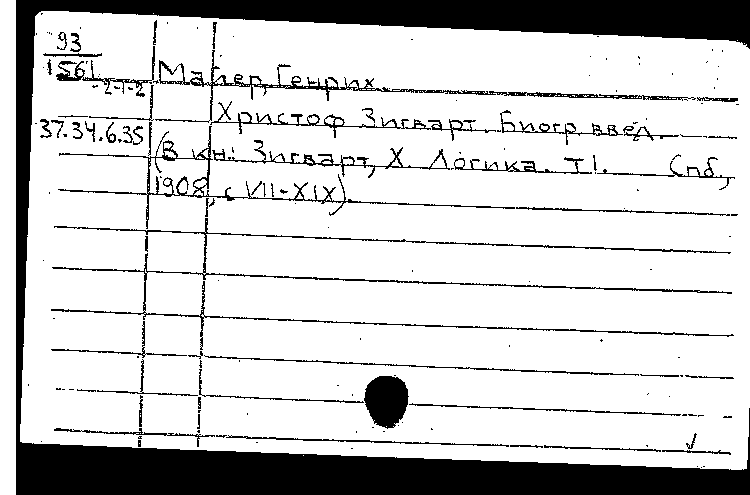 93
1561
-2-1-2
37.34.6.35
Майер, Генрих.
Христоф Зигварт. Биогр. введ.
(В кн.: Зигварт, Х. Логика. т1. Спб.,
1908, с VII-XIX).